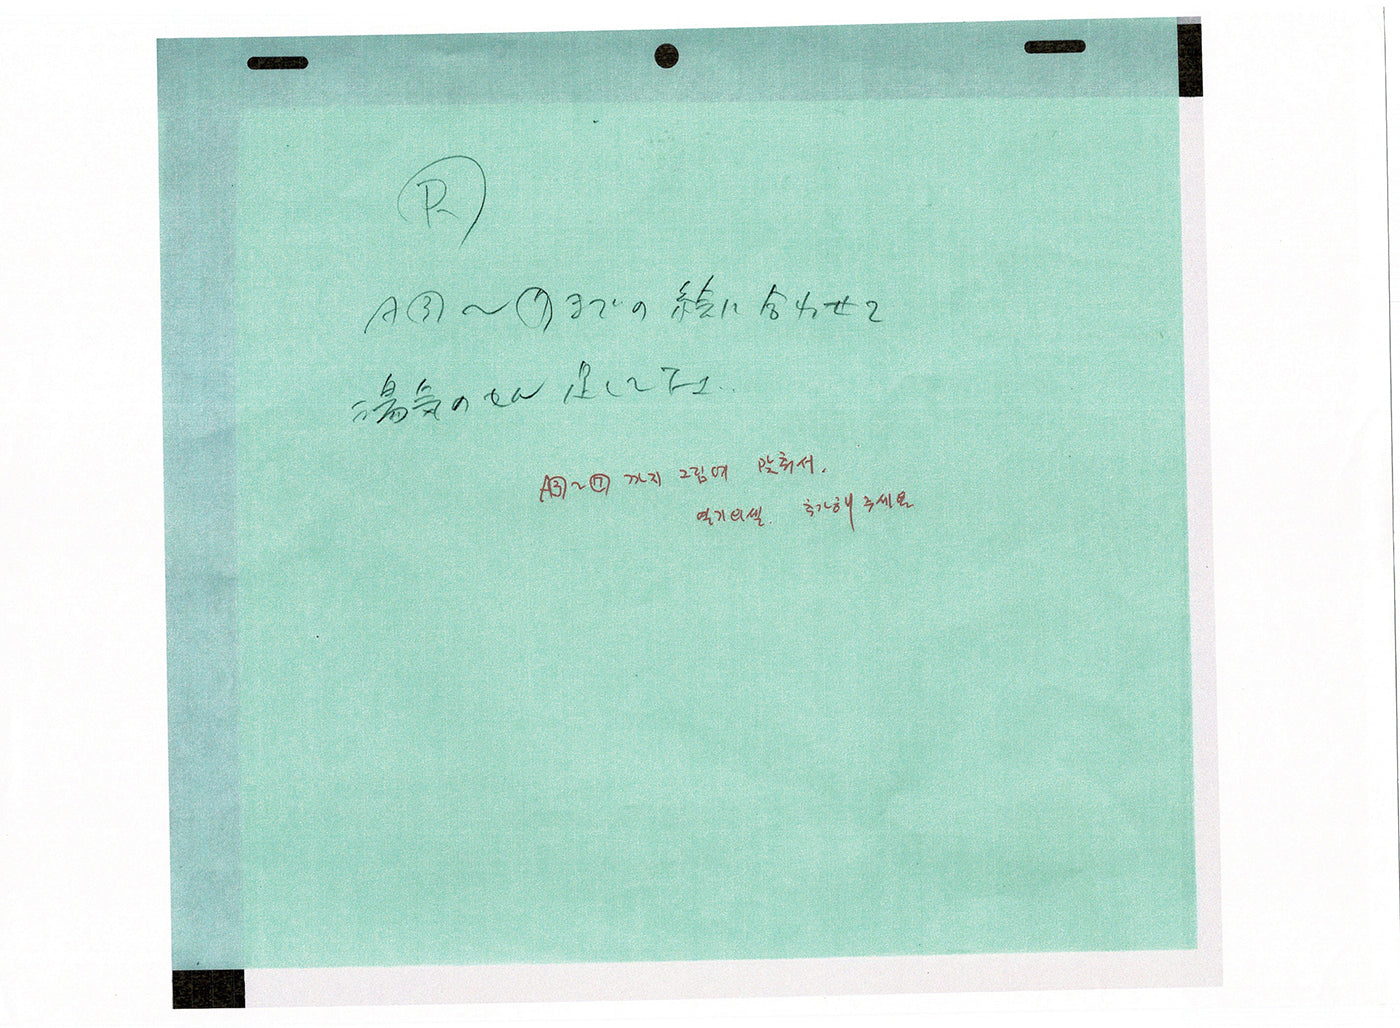 A③〜⑦までの絵に合わせて
湯気のセル 足して下さい..
A③~⑦ 까지 그림에 맞춰서.
열기의셀. 추가해 주세요